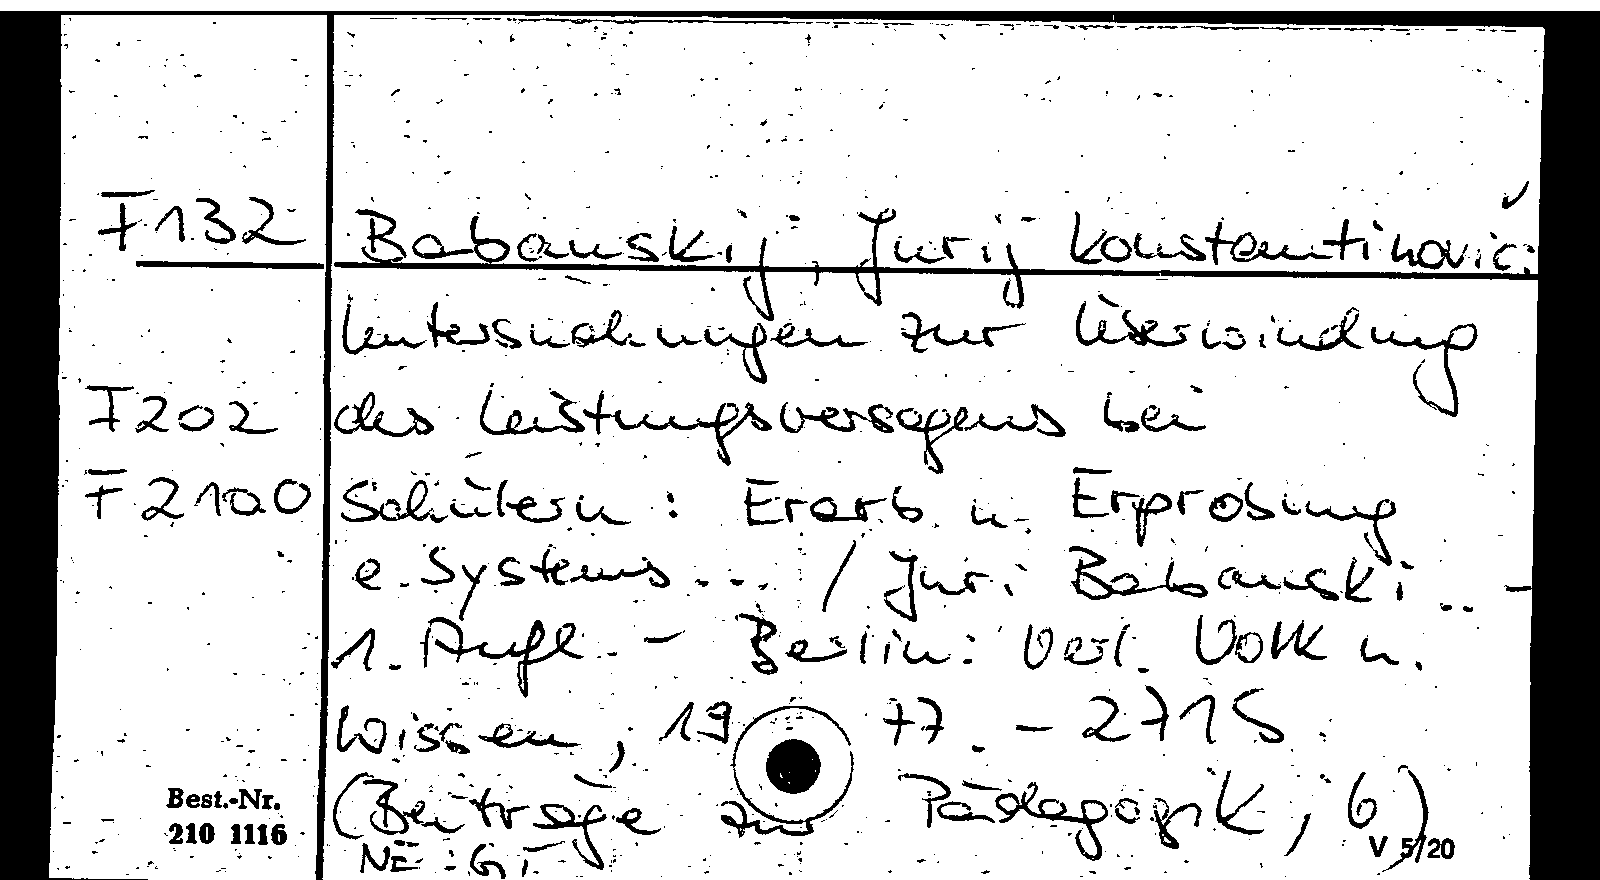 F132 Babanskij, Jurij Konstantinovič:
Untersuchungen zur Überwindung
F202 des Leistungsversagens bei
F210.0 Schülern : Erarb. u. Erprobung
e. Systems ... / Juri Babanski ... -
1. Aufl. - Berlin: Verl. Volk u.
Wissen, 1977. - 271 S.
(Beiträge zur Pädagogik ; 6)
NE : GT
Best.-Nr.
210 1116
V 5/20